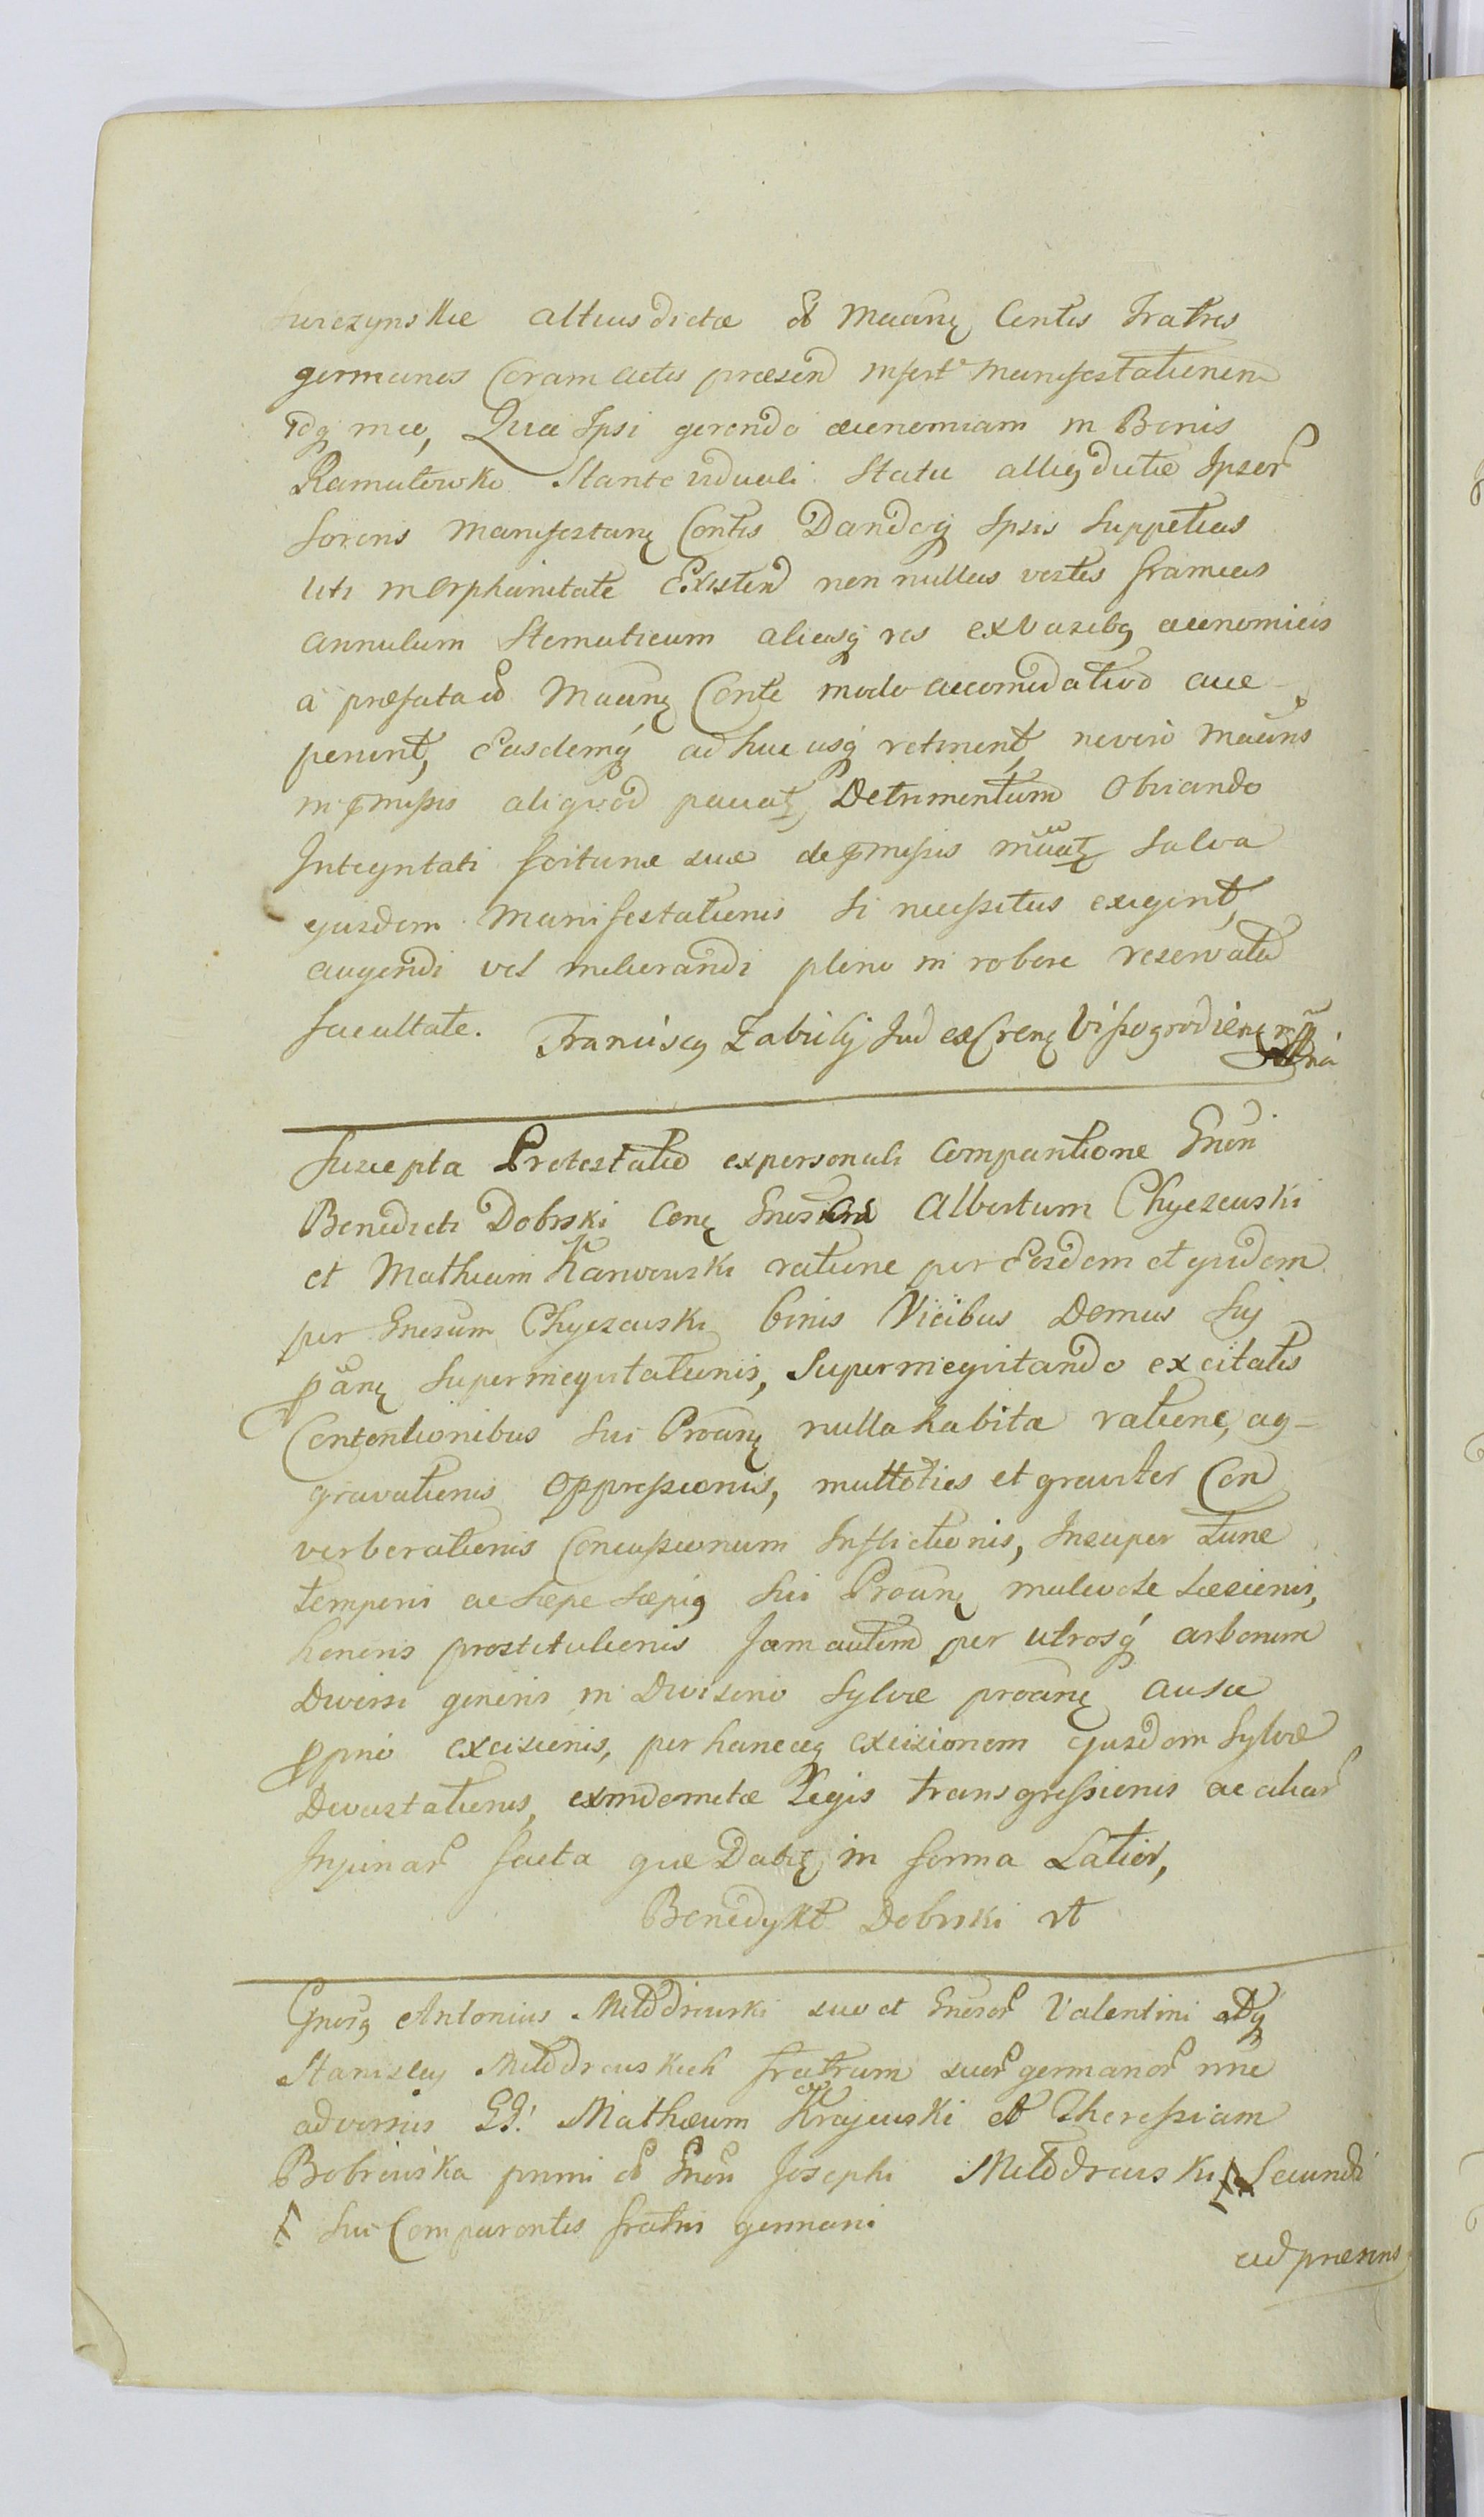 altius dictæ et Mani&#281; Contis Fratres
germanos Coram actis præsen infert Manifestationem
idq in eo, Qua Ipsi gerendo æconomiam in Bonis
Ramutowko Stante viduali Statu Ipsor
Sororis manifestan&#281; Contis Dandoq Ipsis Suppetias
uti in Orphanitate Existen non nullas vestes frameas
annulum Stematicum aliasq res ex Vasibq æconomicis
à præfata Mani&#281; Conte modo accomodatio acce-
perint, Easdemq ad huc usq retinent, ne vero
in pmissis aliquod patiat, Detrimentum Obviando
Integritati fortunæ suæ de pmissis Salva
ejusdem Manifestationis Si necessitas exigerit,
augendi vel meliorandi pleno in robore reservata
facultate. Franciscq Zabickj Jud Visogrodien&#281; mp
Suscepta Protestatio ex personali Comparitione Gnon
Benedicti Dobrski Con&#281; Albertum Chyczewski
et Mathiam Karwowski ratione per Eosdem et quidem
per Gnosum Chyczewski binis Vicibus Domus Suj
pan&#281; Superinequitationis, Superinequitando excitatis
Contentionibus Sui Proan&#281; nulla habita ratione, ag-
gravationis Oppressionis, multoties et graviter Con
verberationis Concussionum Inflictionis, Insuper tunc
temporis ac sæpe sæpiq Sui Proan&#281; malevole Læsionis,
honoris prostitutionis Jam autem per utrosq arborum
Diversi generis in Diviserio Sylvæ proan&#281; ausu
pprio excisionis, per hancq excisionem ejusdem Sylvæ
Devastationis, exindemetæ Legis transgressionis ac aliar
Injuriar facta quæ Dabi&#281; in forma Latior,
Benedykt Dobrski
Gnosq Antonius Młodzdrowski suo et Gnosor Valentini
Stanislaj fratrum suor germanor nne
adversus GG: Mathæum Krajewski et Theressiam
Bobrowska primi Gnon Josephi Secundi
Sui Comparentis fratris germani
ad præsens